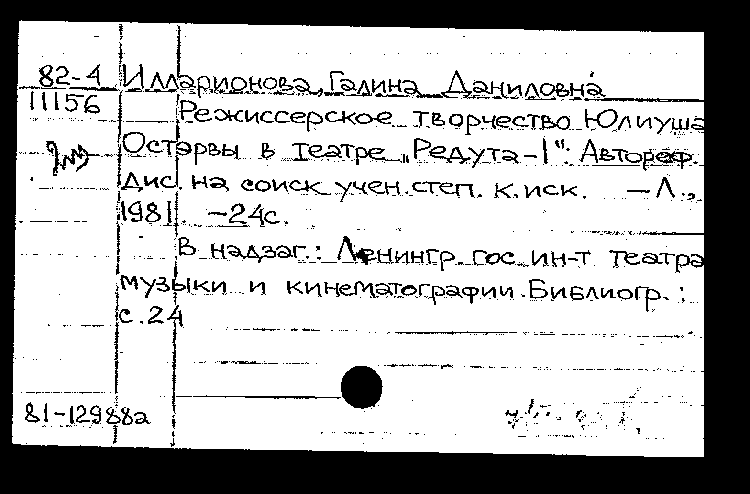 82-4 Илларионова, Галина Даниловна
11156 Режиссерское творчество Юлиуша
Остэрвы в театре „Редута-1": Автореф.
дис. на соиск учен. степ. к. иск. – Л.,
1981. – 24 с.
В надзаг.: Ленингр. гос. ин-т театра
музыки и кинематографии. Библиогр.:
с. 24
81-12988а